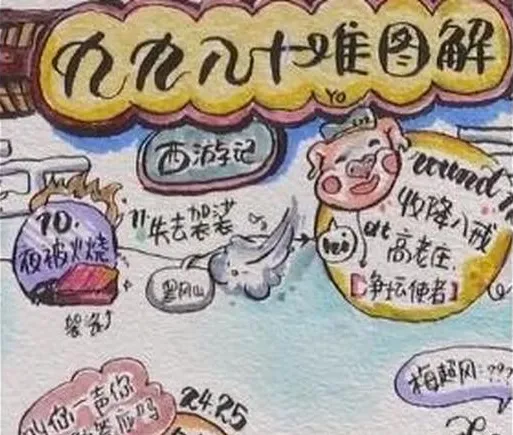 九九八十一难图解
YO
西游记
10.
夜被火烧
袈裟
11
失去袈裟
黑风山
round
收降八戒
at
高老庄.
【净坛使者】
梅超风:???
叫你一声你
答应吗
24.25